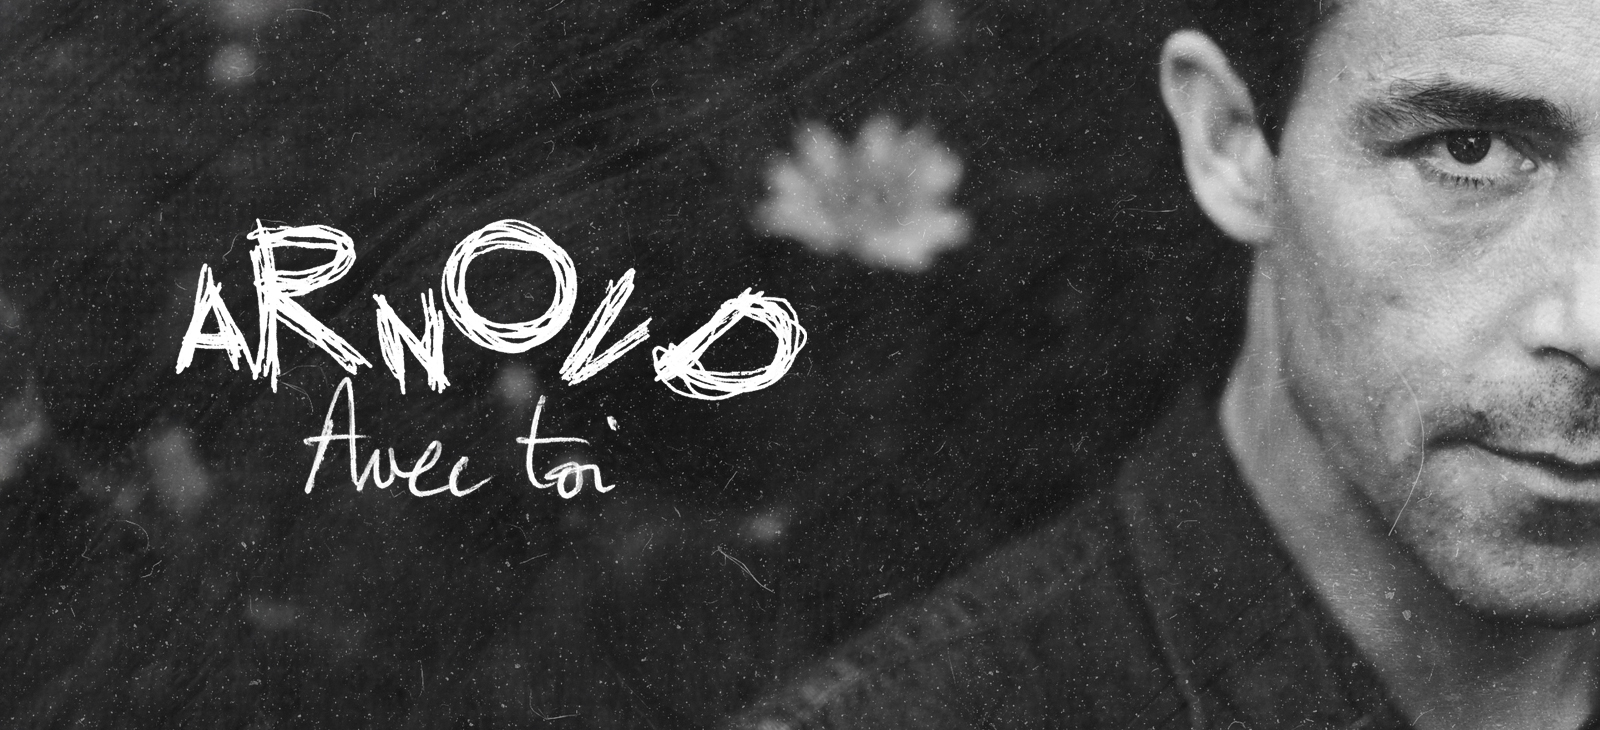 ARNOLD
Avec toi